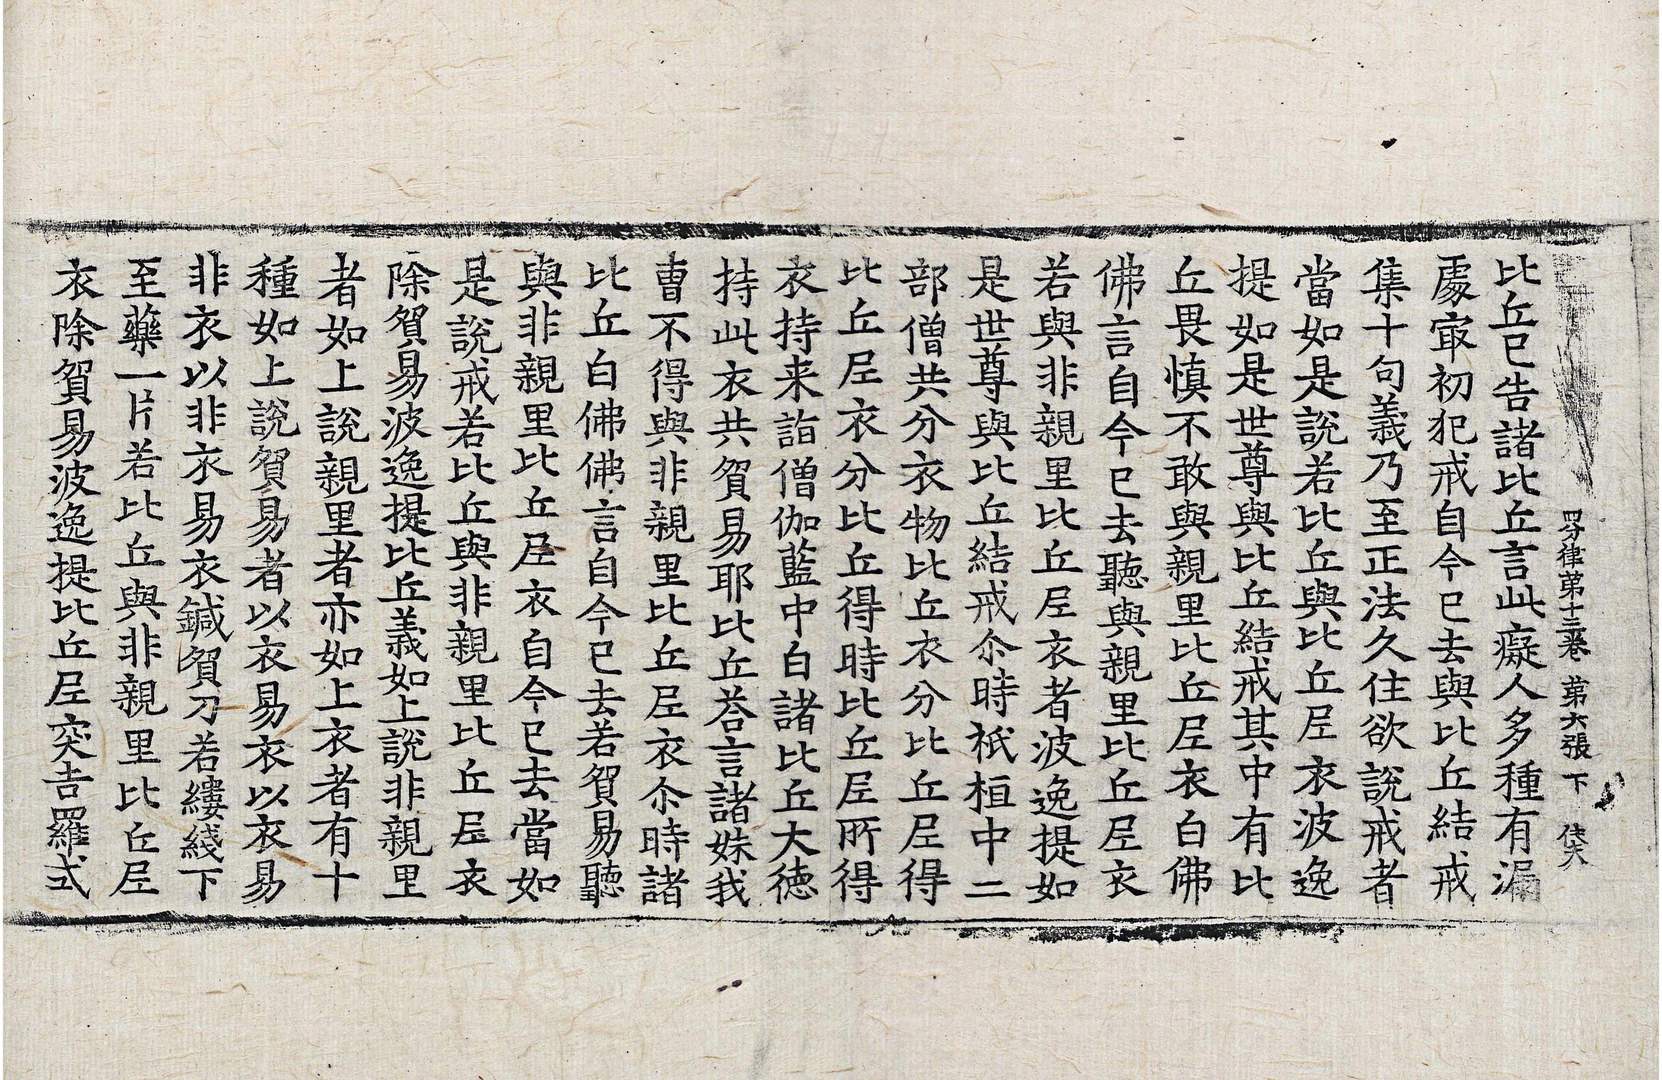 四分律第十三卷 第六張 下
比丘已告諸比丘言此癡人多種有漏
處㝡初犯戒自今已去與比丘結戒
集十句義乃至正法久住欲說戒者
當如是說若比丘與比丘尼衣波逸
提如是世尊與比丘結戒其中有比
丘畏慎不敢與親里比丘尼衣白佛
佛言自今已去聽與親里比丘尼衣
若與非親里比丘尼衣者波逸提如
是世尊與比丘結戒尒時祇桓中二
部僧共分衣物比丘衣分比丘尼得
比丘尼衣分比丘得時比丘尼所得
衣持来詣僧伽藍中白諸比丘大德
持此衣共貿易耶比丘荅言諸妹我
曹不得與非親里比丘尼衣尒時諸
比丘白佛佛言自今已去若貿易聽
與非親里比丘尼衣自今已去當如
是說戒若比丘與非親里比丘尼衣
除貿易波逸提比丘義如上說非親里
者如上說親里者亦如上衣者有十
種如上說貿易者以衣易衣以衣易
非衣以非衣易衣鍼貿刀若縷綫下
至藥一片若比丘與非親里比丘尼
衣除貿易波逸提比丘尼突吉羅式